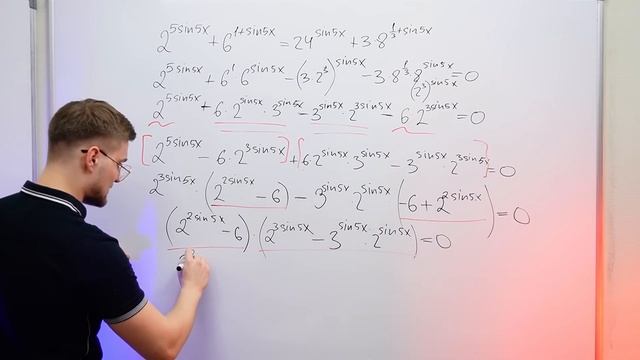 2^{5sin5x} + 6^{1+sin5x} = 24^{sin5x} + 3·8^{\frac{1}{3}+sin5x}
2^{5sin5x} + 6^1·6^{sin5x} - (3·2^3)^{sin5x} - 3·8^{\frac{1}{3}}·8^{sin5x} = 0
(2^3)^{sin5x}
2^{5sin5x} + 6·2^{sin5x}·3^{sin5x} - 3^{sin5x}·2^{3sin5x} - 6·2^{3sin5x} = 0
[2^{5sin5x} - 6·2^{3sin5x}] + [6·2^{sin5x}·3^{sin5x} - 3^{sin5x}·2^{3sin5x}] = 0
2^{3sin5x}·(2^{2sin5x} - 6) - 3^{sin5x}·2^{sin5x}(-6 + 2^{2sin5x}) = 0
(2^{2sin5x} - 6)·(2^{3sin5x} - 3^{sin5x}·2^{sin5x}) = 0